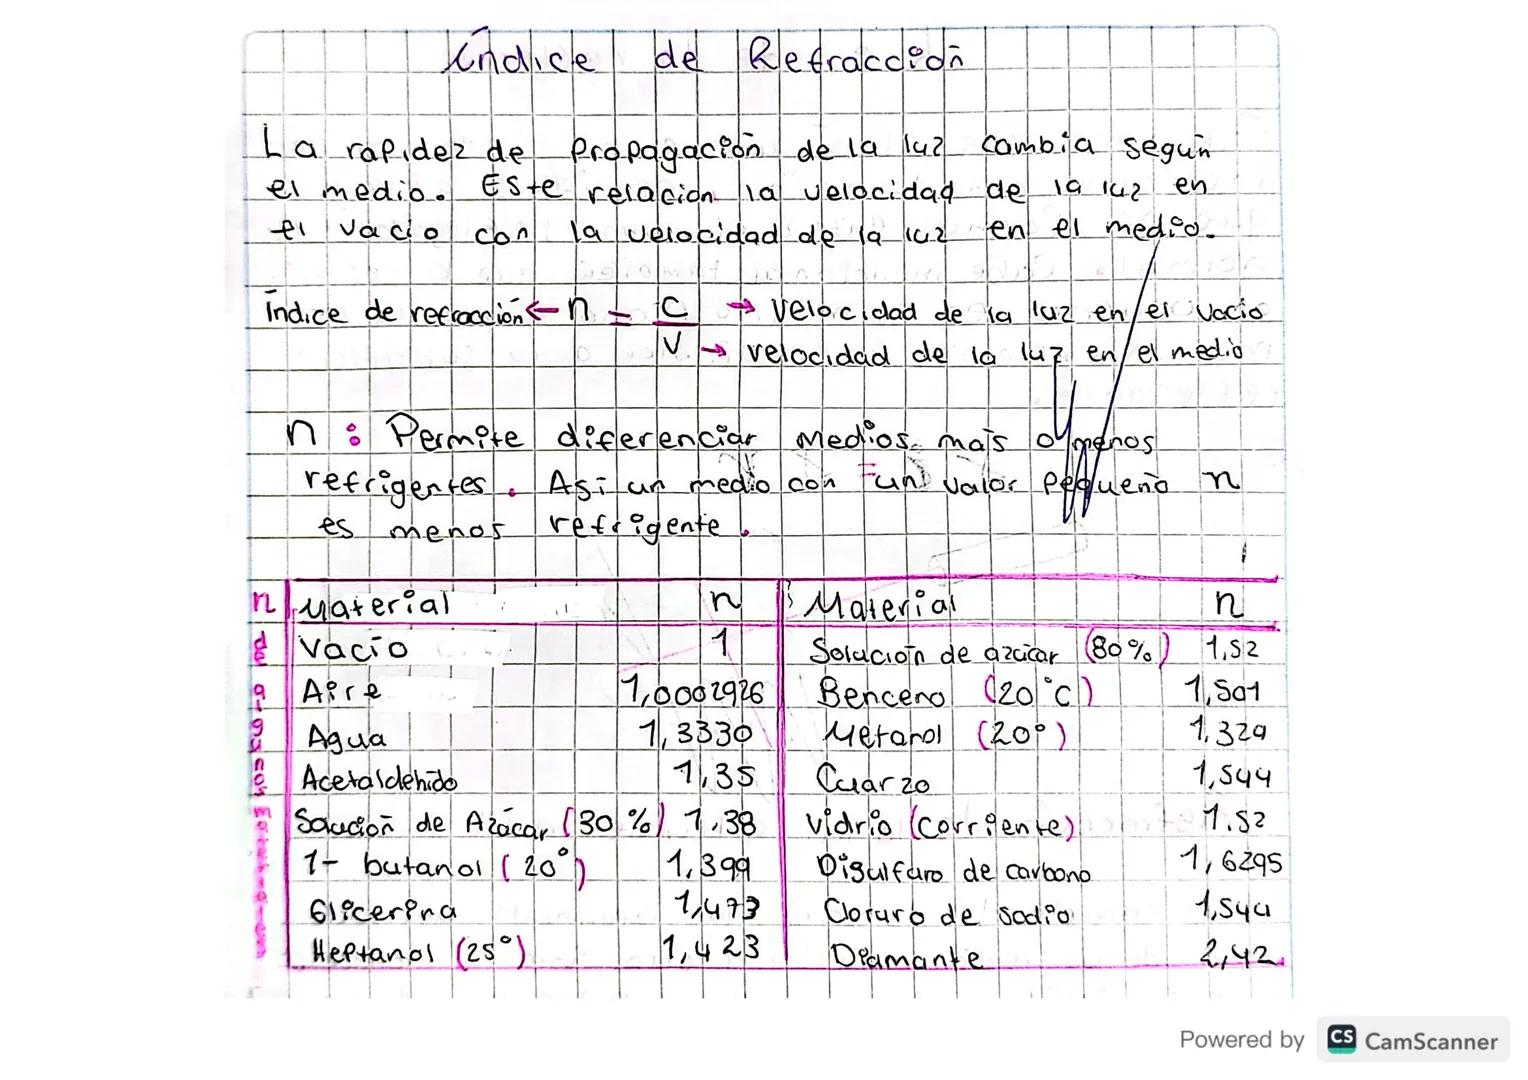 Índice de Refracción
La rapidez de Propagación de la luz cambia según
el medio. Este relación la velocidad de la luz en
el vacio con la velocidad de la luz en el medio.
Índice de refracción ← n = C → velocidad de la luz en el vacio
V → velocidad de la luz en el medio
n : Permite diferenciar medios más o menos
refrigentes. Así un medio con un valor pequeño n
es menos refrigente.
n de algunos materiales
Material n Material n
Vacío 1 Solución de azúcar (80%) 1,52
Aire 1,0002926 Benceno (20°C) 1,501
Agua 1,3330 Metanol (20°) 1,329
Acetaldehido 1,35 Cuarzo 1,544
Soución de Azúcar (30%) 1.38 Vidrio (corriente) 1.52
1- butanol (20°) 1,399 Disulfuro de carbono 1,6295
Glicerina 1,473 Cloruro de sodio 1,544
Heptanol (25°) 1,423 Diamante 2,42
Powered by CS CamScanner